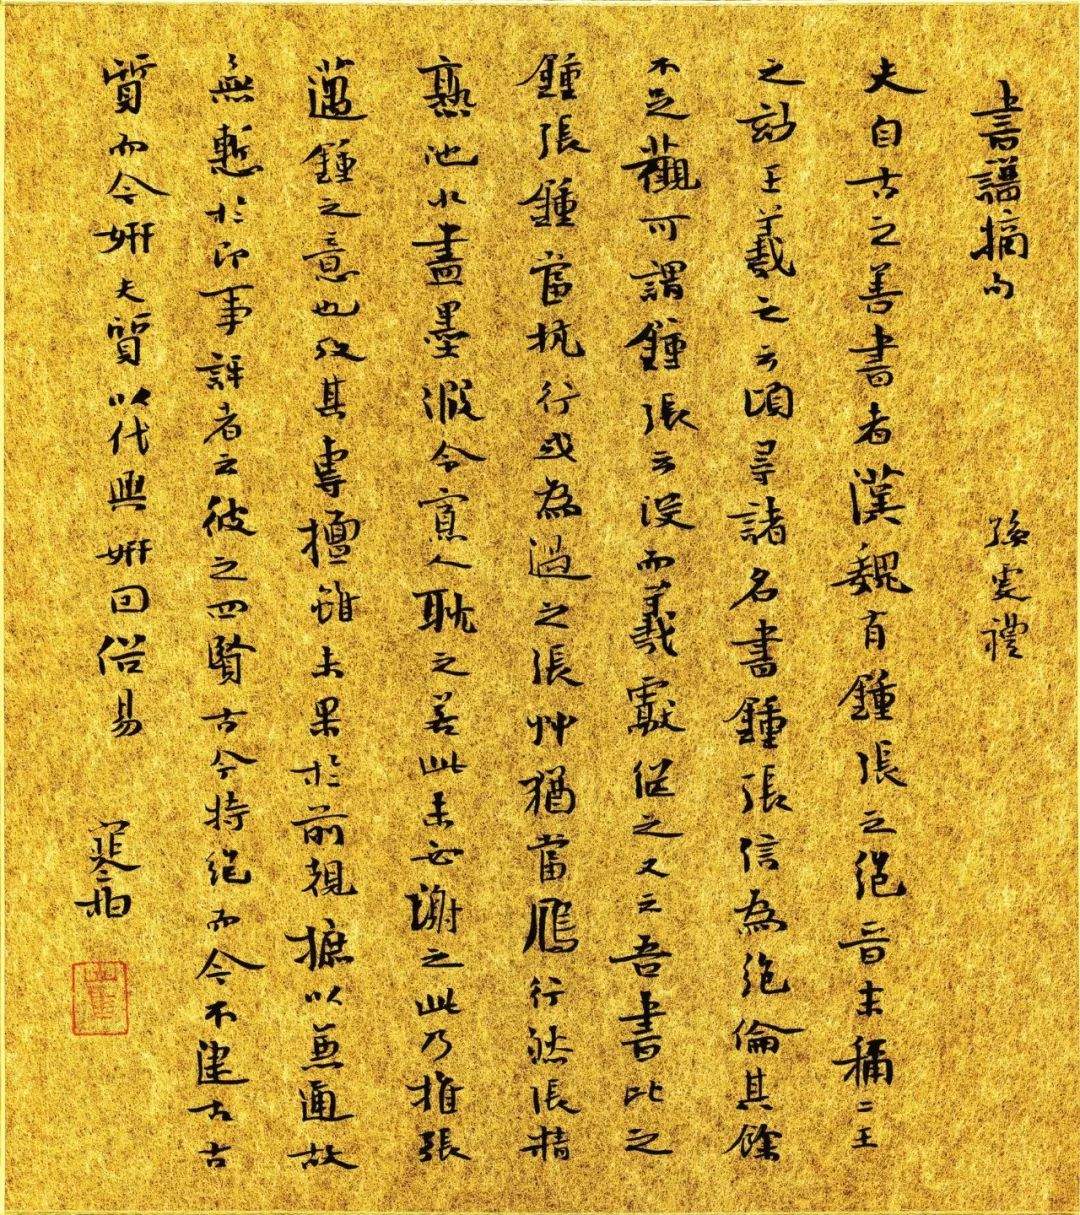 書譜摘句 孫虔禮
夫自古之善書者漢魏有鍾張之絕晉末稱二王
之妙王羲之云頃尋諸名書鍾張信為絕倫其餘
不足觀可謂鍾張云沒而羲獻繼之又云吾書比之
鍾張鍾當抗行或為過之張艸猶當鴈行然張精
熟池水盡墨假令寡人耽之若此未必謝之此乃推張
邁鍾之意也考其專擅雖未果於前規摭以兼通故
無慙於即事評者云彼之四賢古今特絕而今不逮古古
質而今妍夫質以代興妍因俗易